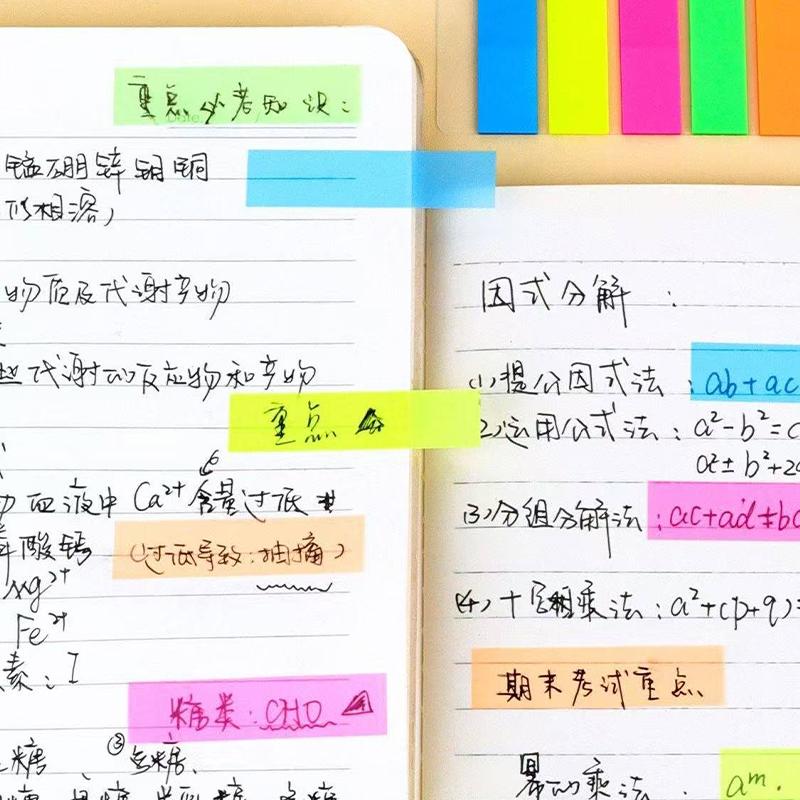 重点必考知识:
锰硼锌钼铜
似相溶)
物质及代谢产物
些代谢的反应物和产物
重点
血液中 Ca²⁺ 含量过低
酸钙 (过低导致:抽搐)
Mg²⁺
Fe²⁺
素:I
糖类:CHO
糖 ③多糖、
因式分解:
(1)提公因式法:ab+ac
(2)运用公式法:a²-b²=
a²±b²+2
(3)分组分解法:ac+ad+b
(4)十字相乘法:a²+(p+q)=
期末考试重点
幂的乘法:aᵐ·